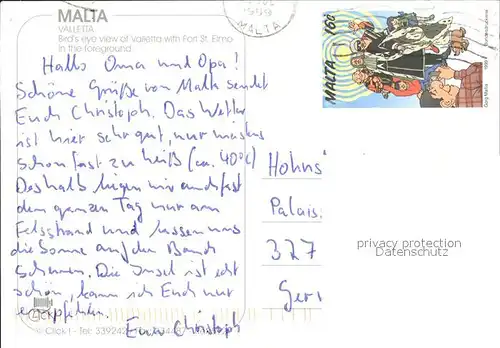 MALTA
VALLETTA
Bird's eye view of Valletta with Fort St. Elmo
in the foreground
MALTA
MALTA 16c
Hallo Oma und Opa!
Schöne Grüße von Malta sendet
Euch Christoph. Das Wetter
ist hier sehr gut, nur
schon fast zu heiß (ca. 40°C)
Deshalb liegen wir auch fast
den ganzen Tag nur am
Felsstrand und lassen uns
die Sonne auf den Bauch
scheinen. Die Insel ist echt
schön, kann ich Euch nur
empfehlen.
Euer Christoph
Hohns
Palais
327
Ger
privacy protection
Datenschutz
© Click! - Tel: 339242